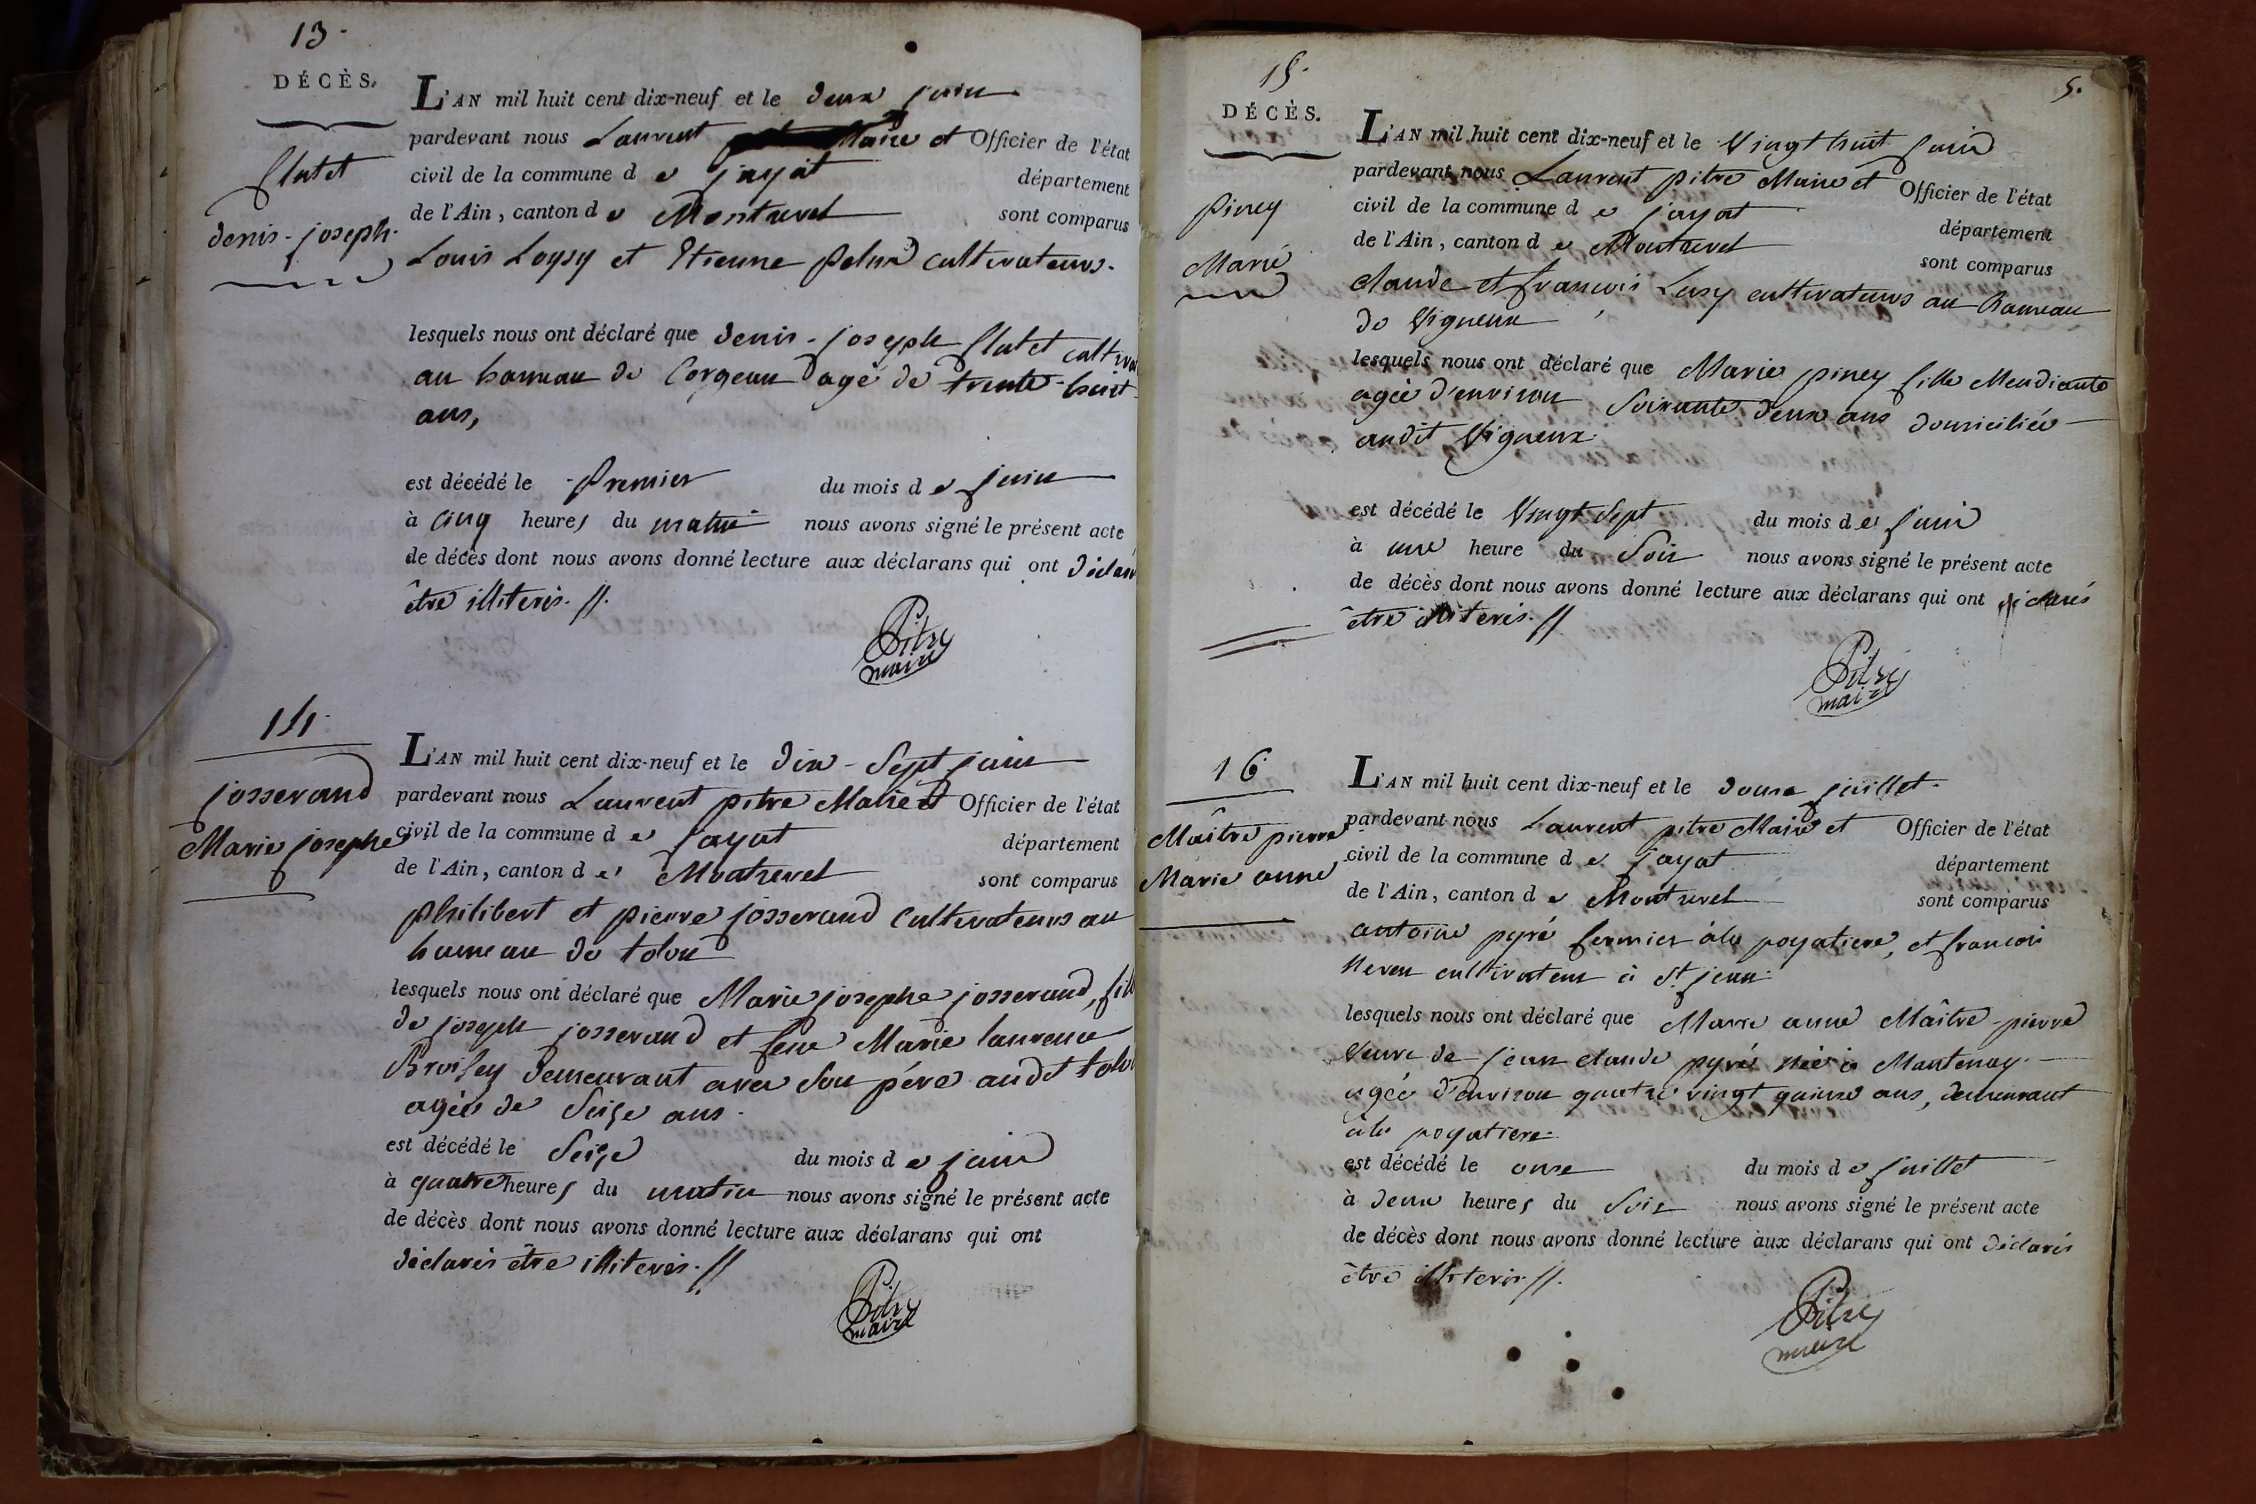 13.
DÉCÈS.
flutet
denis-joseph.
L'AN mil huit cent dix-neuf et le deux juin
pardevant nous Laurent Maire et Officier de l'état
civil de la commune de jayat département
de l'Ain, canton de Montrevel sont comparus
Louis Loysy et Etienne pelux cultivateurs.
lesquels nous ont déclaré que denis-joseph flutet
au hameau de Corgeau agé de trente-huit
ans,
est décédé le premier du mois de juin
à cinq heures du matin nous avons signé le présent acte
de décès dont nous avons donné lecture aux déclarans qui ont
être illiterés.//.
Pitre
maire
14.
josserand
Marie josephe
L'AN mil huit cent dix-neuf et le dix-sept juin
pardevant nous Laurent pitre Maire et Officier de l'état
civil de la commune de jayat département
de l'Ain, canton de Montrevel sont comparus
philibert et pierre josserand cultivateurs au
hameau de tolou
lesquels nous ont déclaré que Marie josephe josserand,
de joseph josserand et feue Marie laurence
Broissey demeurant avec son père audt
agée de seize ans.
est décédé le seize du mois de juin
à quatre heures du matin nous avons signé le présent acte
de décès dont nous avons donné lecture aux déclarans qui ont
déclarés être illiterés.//.
Pitre
maire
15.
5.
DÉCÈS.
piney
Marie
L'AN mil huit cent dix-neuf et le vingt huit juin
pardevant nous Laurent pitre Maire et Officier de l'état
civil de la commune de jayat département
de l'Ain, canton de Montrevel sont comparus
claude et françois Lusy cultivateurs au hameau
de Vigneux
lesquels nous ont déclaré que Marie piney fille Mendiante
agée d'environ soixante deux ans domiciliée
audit Vigneux.
est décédé le vingt sept du mois de juin
à une heure du soir nous avons signé le présent acte
de décès dont nous avons donné lecture aux déclarans qui ont déclarés
être illiterés.//
Pitre
maire
16
Maître pierre
Marie anne
L'AN mil huit cent dix-neuf et le douse juillet.
pardevant nous Laurent pitre Maire et Officier de l'état
civil de la commune de jayat département
de l'Ain, canton de Montrevel sont comparus
antoine pyré fermier à la poyatiere, et françois
neveu cultivateur à St jean.
lesquels nous ont déclaré que Marie anne Maître-pierre
veuve de jean claude pyré née à Mantenay.
agée d'environ quatre vingt quinse ans, demeurant
à la poyatiere.
est décédé le onse du mois de juillet
à deux heures du soir nous avons signé le présent acte
de décès dont nous avons donné lecture aux déclarans qui ont déclarés
être illiterés.//.
Pitre
maire